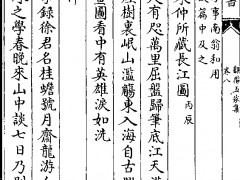 書
卷八
事南翁和用
篇中及之
永仲所藏長江圖 丙辰
天有咫萬里屈盤歸筆底江天
樹裹岷山濫觴東入海自古
圖看中有英雄淚如洗
錄徐君名桂蟾號月齋龍游
之學春晚來山中談七日乃別